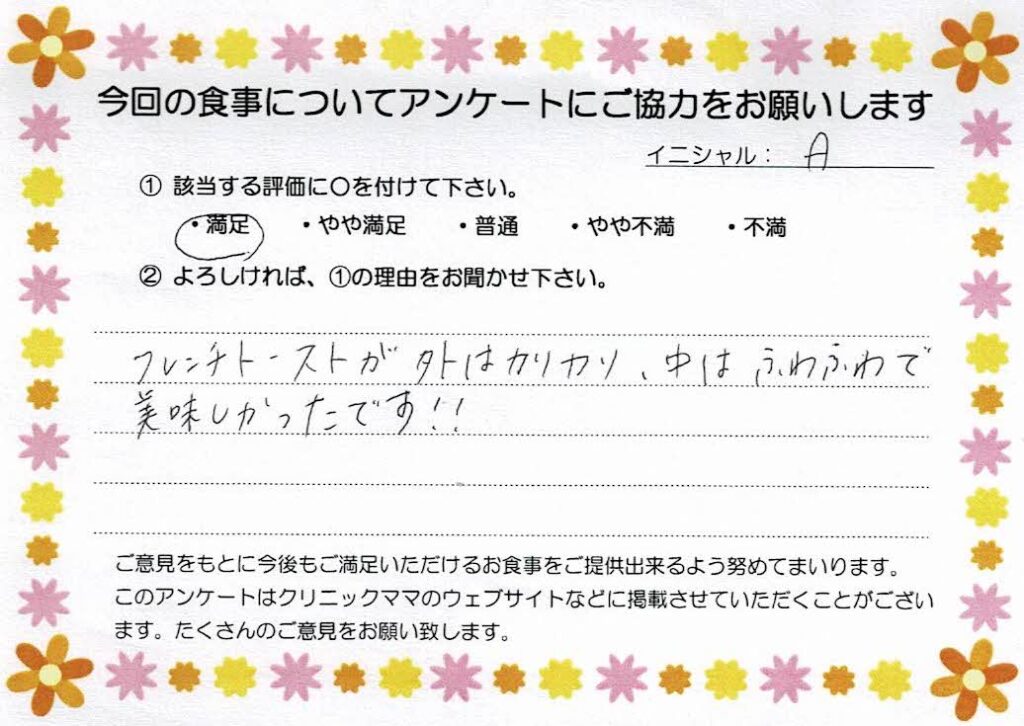 今回の食事についてアンケートにご協力をお願いします
イニシャル： A
① 該当する評価に〇を付けて下さい。
・満足 ・やや満足 ・普通 ・やや不満 ・不満
② よろしければ、①の理由をお聞かせ下さい。
フレンチトーストが外はカリカリ、中はふわふわで
美味しかったです!!
ご意見をもとに今後もご満足いただけるお食事をご提供出来るよう努めてまいります。
このアンケートはクリニックママのウェブサイトなどに掲載させていただくことがござい
ます。たくさんのご意見をお願い致します。